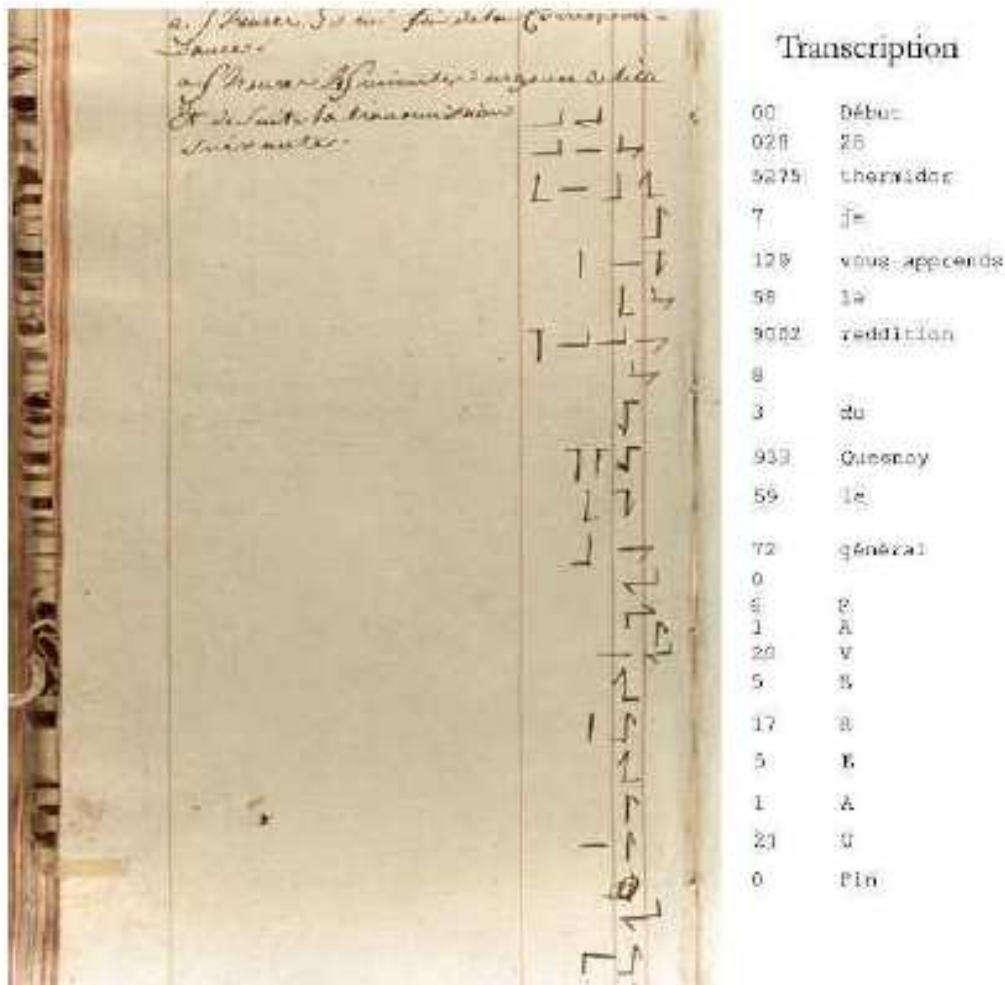 fin de la Correspon-
dance.
heures minutes urgence de Lille
Et de suite la transmission
suivantes.
Transcription
00 Début
028 28
5275 thermidor
7 je
129 vous apprends
58 la
9002 reddition
8
3 du
933 Quesnoy
59 le
72 général
0
1 A
20 V
5
17 R
5 E
1 A
U
0 Fin